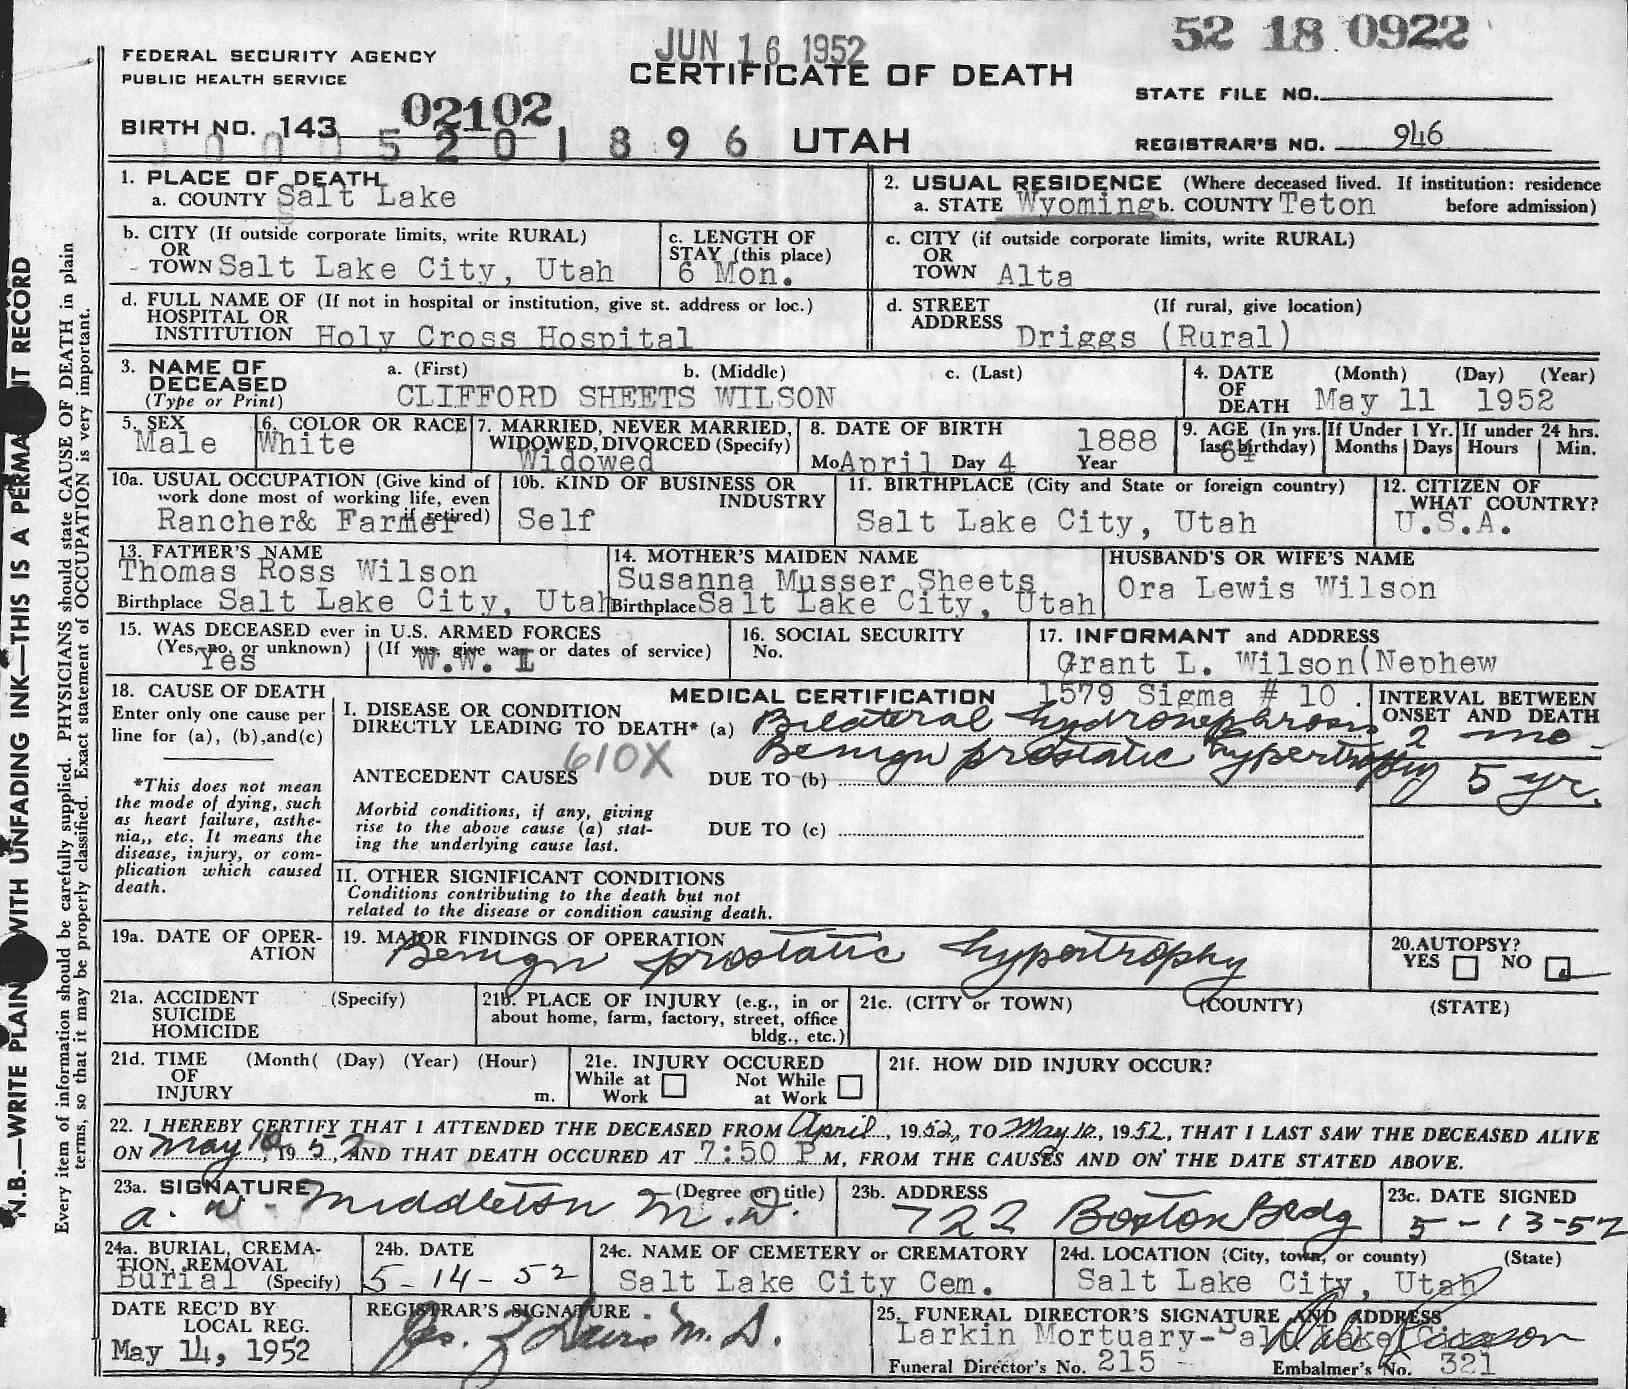 JUN 16 1952
52 18 0922
FEDERAL SECURITY AGENCY
PUBLIC HEALTH SERVICE
CERTIFICATE OF DEATH
STATE FILE NO.
02102
BIRTH NO. 143
5 2 0 1 8 9 6 UTAH
REGISTRAR'S NO. 946
1. PLACE OF DEATH
a. COUNTY Salt Lake
2. USUAL RESIDENCE (Where deceased lived. If institution: residence before admission)
a. STATE Wyoming b. COUNTY Teton
b. CITY (If outside corporate limits, write RURAL)
OR
TOWN Salt Lake City, Utah
c. LENGTH OF
STAY (this place)
6 Mon.
c. CITY (if outside corporate limits, write RURAL)
OR
TOWN Alta
d. FULL NAME OF (If not in hospital or institution, give st. address or loc.)
HOSPITAL OR
INSTITUTION Holy Cross Hospital
d. STREET (If rural, give location)
ADDRESS Driggs (Rural)
3. NAME OF
DECEASED
(Type or Print)
a. (First) b. (Middle) c. (Last)
CLIFFORD SHEETS WILSON
4. DATE (Month) (Day) (Year)
OF
DEATH May 11 1952
5. SEX
Male
6. COLOR OR RACE
White
7. MARRIED, NEVER MARRIED,
WIDOWED, DIVORCED (Specify)
Widowed
8. DATE OF BIRTH 1888
Mo April Day 4 Year
9. AGE (In yrs. last birthday)
64
If Under 1 Yr.
Months Days
If under 24 hrs.
Hours Min.
10a. USUAL OCCUPATION (Give kind of
work done most of working life, even
if retired)
Rancher& Farmer
10b. KIND OF BUSINESS OR
INDUSTRY
Self
11. BIRTHPLACE (City and State or foreign country)
Salt Lake City, Utah
12. CITIZEN OF
WHAT COUNTRY?
U.S.A.
13. FATHER'S NAME
Thomas Ross Wilson
Birthplace Salt Lake City, Utah
14. MOTHER'S MAIDEN NAME
Susanna Musser Sheets
Birthplace Salt Lake City, Utah
HUSBAND'S OR WIFE'S NAME
Ora Lewis Wilson
15. WAS DECEASED ever in U.S. ARMED FORCES
(Yes, no, or unknown) (If yes, give war or dates of service)
Yes W.W. I
16. SOCIAL SECURITY
No.
17. INFORMANT and ADDRESS
Grant L. Wilson(Nephew
1579 Sigma # 10
18. CAUSE OF DEATH
Enter only one cause per
line for (a), (b),and(c)
*This does not mean
the mode of dying, such
as heart failure, asthe-
nia,, etc. It means the
disease, injury, or com-
plication which caused
death.
MEDICAL CERTIFICATION
I. DISEASE OR CONDITION
DIRECTLY LEADING TO DEATH* (a) Bilateral hydronephrosis
INTERVAL BETWEEN
ONSET AND DEATH
2 mo -
610X
ANTECEDENT CAUSES
DUE TO (b) Benign prostatic hypertrophy 5 yr.
Morbid conditions, if any, giving
rise to the above cause (a) stat-
ing the underlying cause last.
DUE TO (c)
II. OTHER SIGNIFICANT CONDITIONS
Conditions contributing to the death but not
related to the disease or condition causing death.
19a. DATE OF OPER-
ATION
19. MAJOR FINDINGS OF OPERATION
Benign prostatic hypertrophy
20.AUTOPSY?
YES NO
21a. ACCIDENT (Specify)
SUICIDE
HOMICIDE
21b. PLACE OF INJURY (e.g., in or
about home, farm, factory, street, office
bldg., etc.)
21c. (CITY or TOWN) (COUNTY) (STATE)
21d. TIME (Month( (Day) (Year) (Hour)
OF
INJURY m.
21e. INJURY OCCURED
While at Work Not While at Work
21f. HOW DID INJURY OCCUR?
22. I HEREBY CERTIFY THAT I ATTENDED THE DECEASED FROM April, 1952, TO May 10, 1952, THAT I LAST SAW THE DECEASED ALIVE
ON May 10, 1952, AND THAT DEATH OCCURED AT 7:50 P M, FROM THE CAUSES AND ON THE DATE STATED ABOVE.
23a. SIGNATURE (Degree or title)
a. W. Middleton M.D.
23b. ADDRESS
722 Boston Bldg
23c. DATE SIGNED
5-13-52
24a. BURIAL, CREMA-
TION, REMOVAL
Burial (Specify)
24b. DATE
5-14-52
24c. NAME OF CEMETERY or CREMATORY
Salt Lake City Cem.
24d. LOCATION (City, town, or county) (State)
Salt Lake City, Utah
DATE REC'D BY
LOCAL REG.
May 14, 1952
REGISTRAR'S SIGNATURE
M.D.
25. FUNERAL DIRECTOR'S SIGNATURE AND ADDRESS
Larkin Mortuary-Salt Lake City
Funeral Director's No. 215 Embalmer's No. 321
N.B.—WRITE PLAIN WITH UNFADING INK—THIS IS A PERMA NT RECORD
Every item of information should be carefully supplied. PHYSICIANS should state CAUSE OF DEATH in plain
terms, so that it may be properly classified. Exact statement of OCCUPATION is very important.